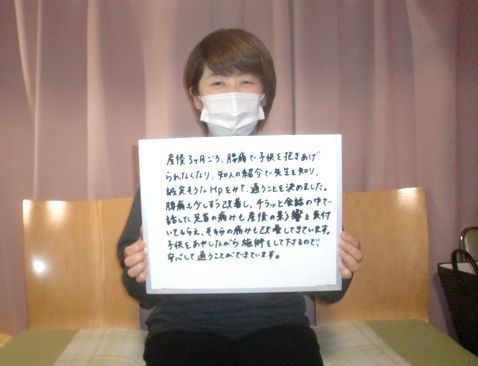 産後3ヶ月ごろ、腰痛で子供を抱きあげ
られなくなり、知人の紹介で先生と知り、
誠実そうなHpをみて、通うことを決めました。
腰痛も少しずつ改善し、チラッと会話の中で
話した足首の痛みも産後の影響と気付
いてもらえ、そちらの痛みも改善してきています。
子供をあやしながら施術をして下さるので
安心して通うことができています。